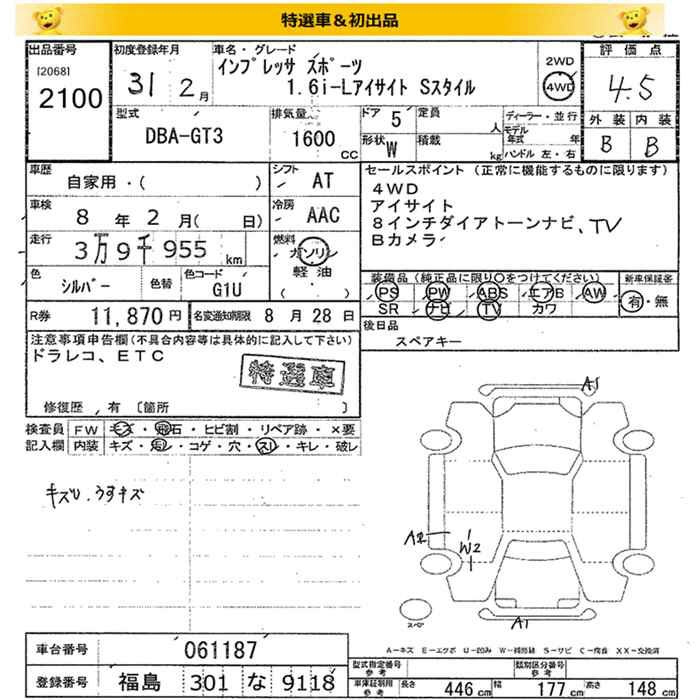 特選車＆初出品
出品番号
[2068]
2100
初度登録年月
31 2月
車名・グレード
インプレッサ スポーツ
1.6i-Lアイサイト Sスタイル
2WD
4WD
評価点
4.5
外装 内装
B B
型式
DBA-GT3
排気量
1600 CC
ドア 5
定員 人
形状 W
積載 kg
ディーラー・並行
モデル年式 年
ハンドル 左・右
車歴
自家用・( )
シフト AT
車検
8年 2月( 日)
冷房 AAC
走行
3万9千955 km
燃料
ガソリン
軽油
( )
色
シルバー
色替
色コード
G1U
セールスポイント (正常に機能するものに限ります)
4WD
アイサイト
8インチダイアトーンナビ、TV
Bカメラ
装備品 (純正品に限り○をつけてください)
PS PW ABS エアB AW
SR ナビ TV カワ
新車保証書
有・無
R券 11,870円
名変通知期限 8月28日
後日品
スペアキー
注意事項申告欄(不具合内容等は具体的に記入して下さい)
ドラレコ、ETC
特選車
修復歴、有 〔箇所 〕
検査員記入欄
FW キズ・飛石・ヒビ割・リペア跡・×要
内装 キズ・汚レ・コゲ・穴・スレ・キレ・破レ
キズU.うすキズ
A1
A2
W2
A1
スペア
A－キズ E－エクボ U－凹み W－補修跡 S－サビ C－腐食 XX－交換済
車台番号 061187
登録番号 福島 301 な 9118
型式指定番号 参考
類別区分番号 参考
車庫証明用 参考 長さ 446cm 幅 177cm 高さ 148cm